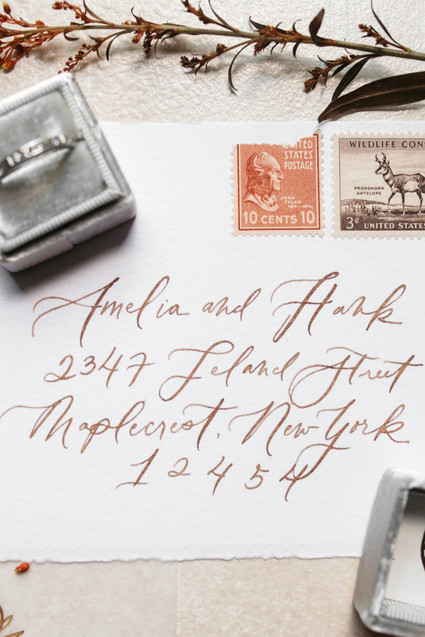 UNITED
STATES
POSTAGE
JOHN TYLER
10 CENTS 10
WILDLIFE CON
PRONGHORN
ANTELOPE
3¢ UNITED STATES
Amelia and Hank
2347 Leland Street
Maplecrest, New York
12454